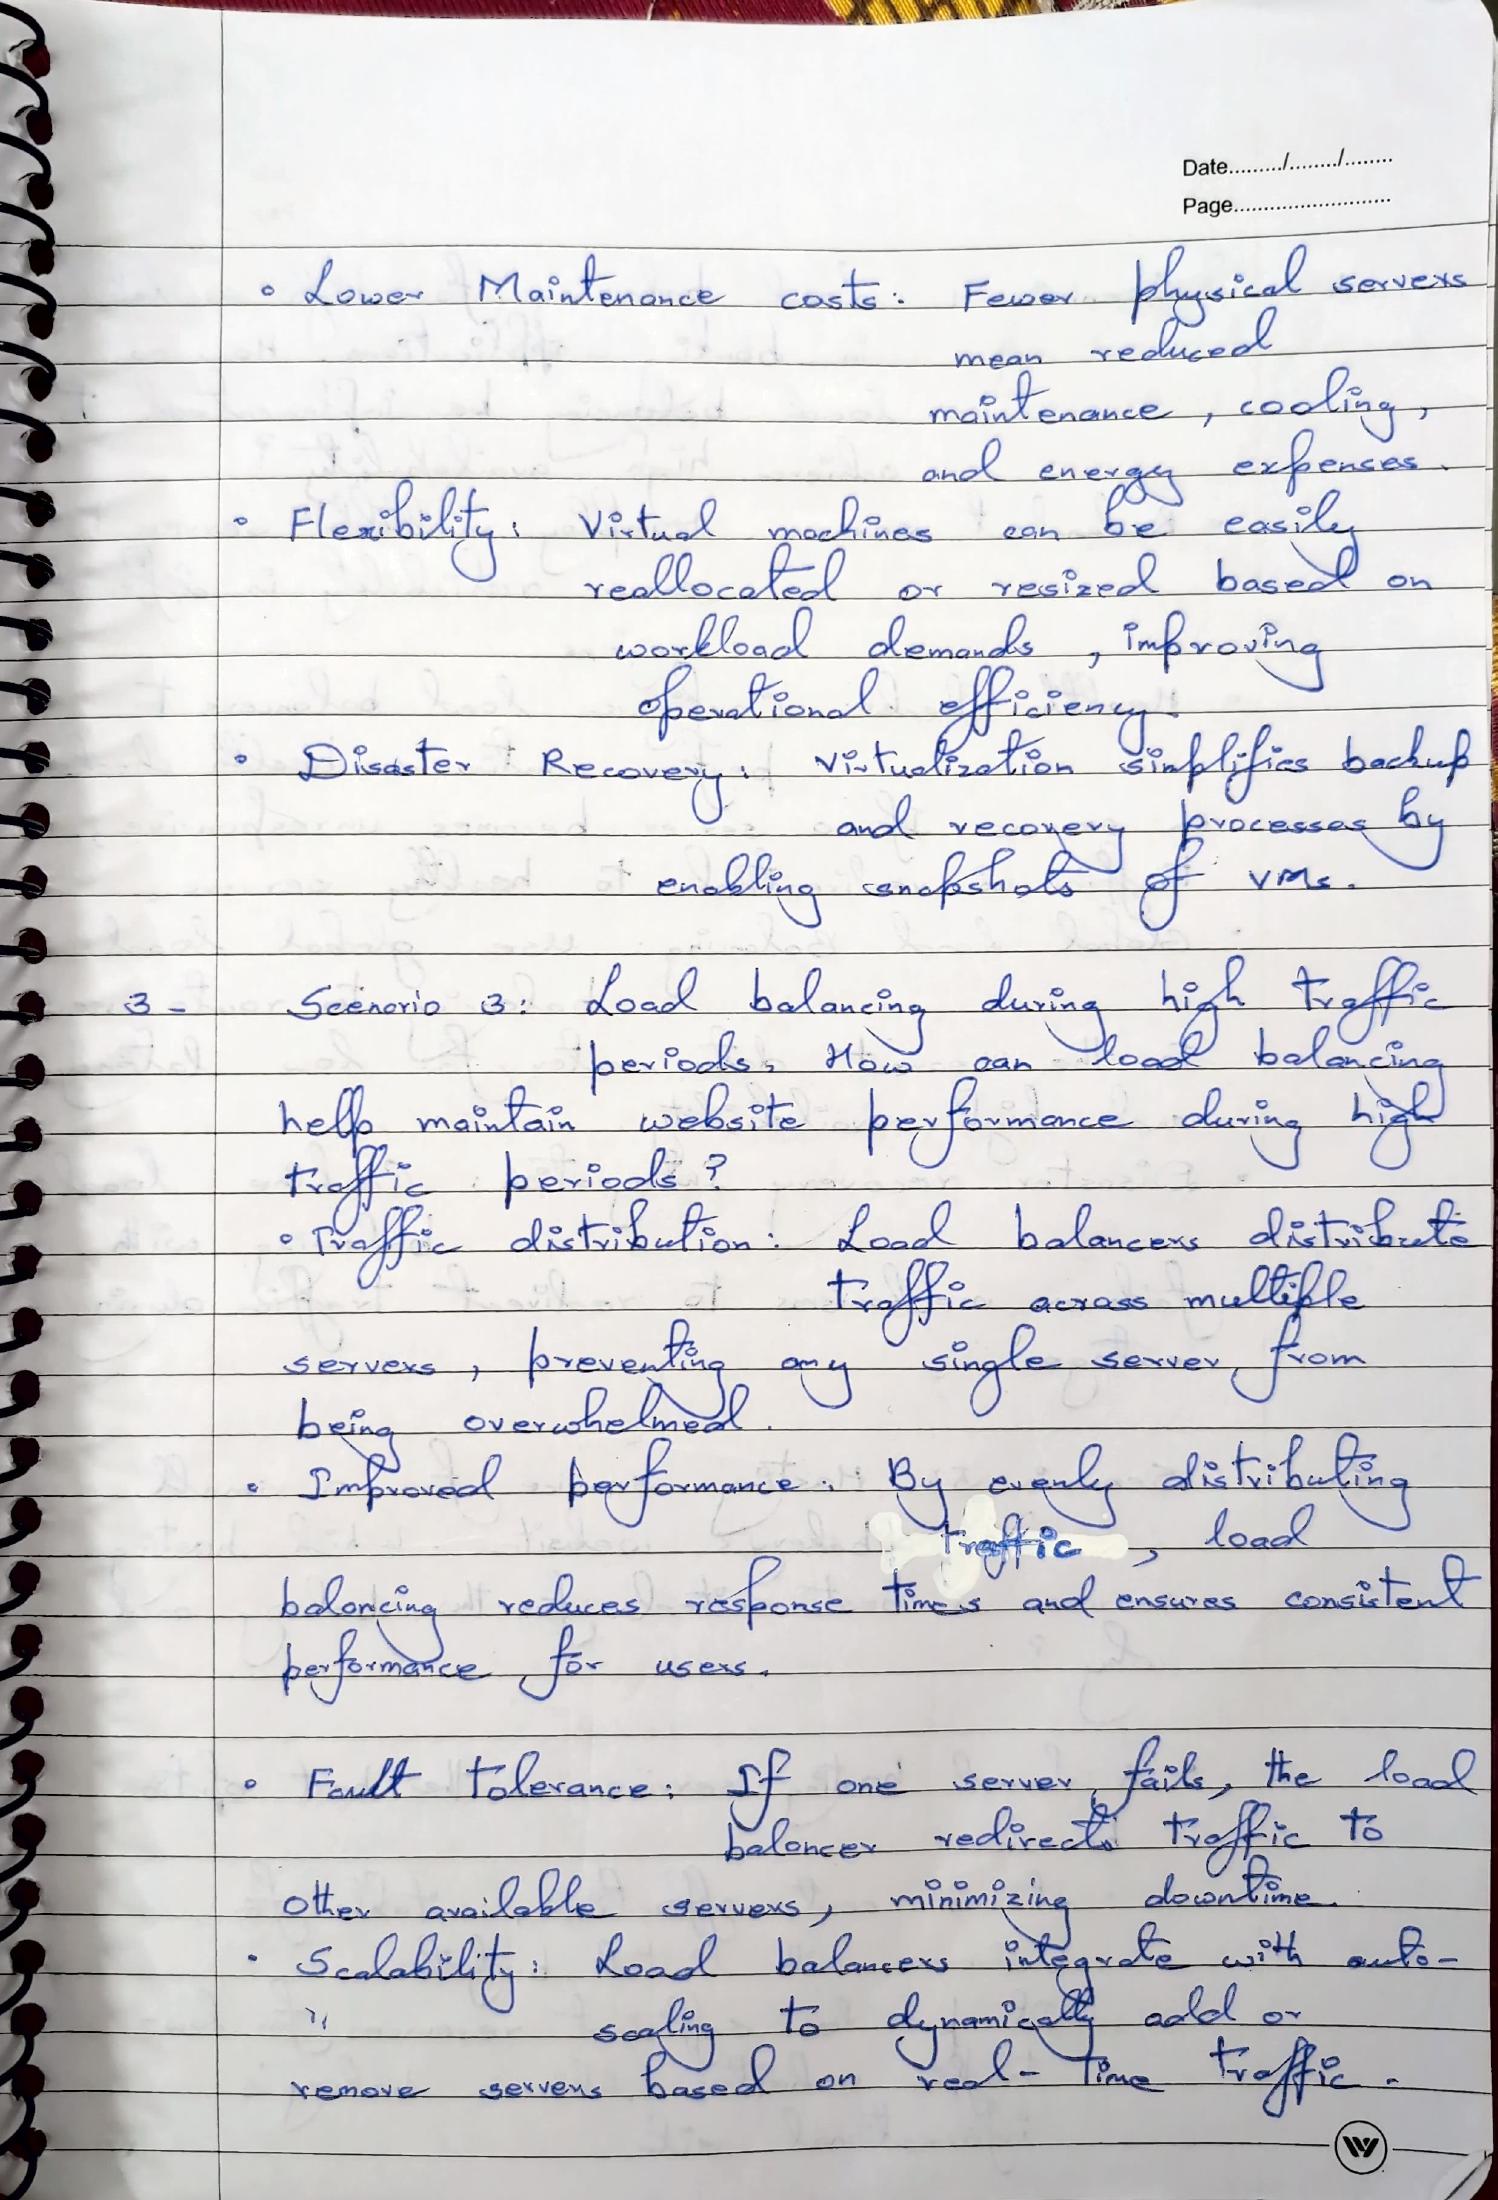 Date........./......../........
Page...........................
• Lower Maintenance costs: Fewer physical servers
mean reduced
maintenance, cooling,
and energy expenses.
• Flexibility: Virtual machines can be easily
reallocated or resized based on
workload demands, improving
operational efficiency.
• Disaster Recovery: Virtualization simplifies backup
and recovery processes by
enabling snapshots of VMs.
3- Scenario 3: Load balancing during high traffic
periods. How can load balancing
help maintain website performance during high
traffic periods?
• Traffic distribution: Load balancers distribute
traffic across multiple
servers, preventing any single server from
being overwhelmed.
• Improved performance: By evenly distributing
traffic, load
balancing reduces response times and ensures consistent
performance for users.
• Fault tolerance: If one server fails, the load
balancer redirects traffic to
other available servers, minimizing downtime.
• Scalability: Load balancers integrate with auto-
" scaling to dynamically add or
remove servers based on real-time traffic.
W